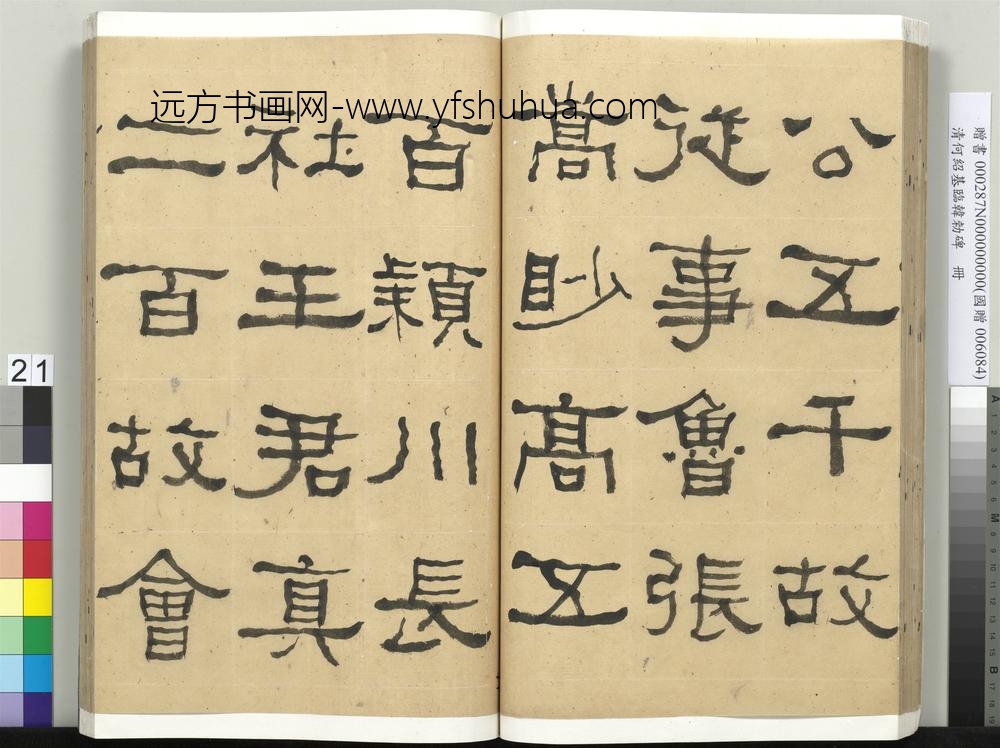 远方书画网-www.yfshuhua.com
公五千故
從事魯張
嵩眇高五
百潁川長
社王君真
二百故會
贈書 000287N000000000(國贈 006084)
清何紹基臨韓勑碑 冊
21